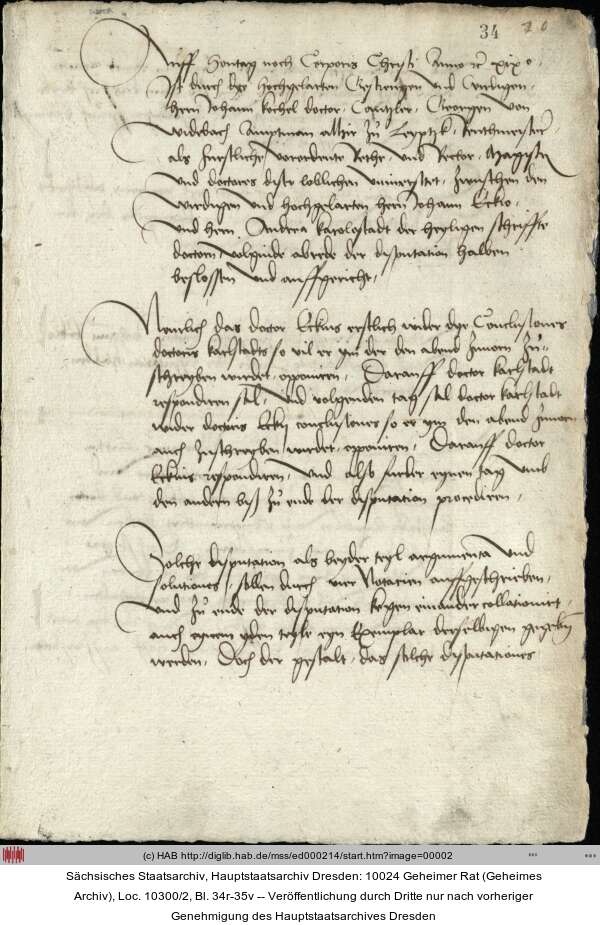 34
Auff Sontag noch Corporis Christi Anno etc. xixº
Ist durch dye hochgelarten Gestrengen und Wirdigen
hern Johann kochel doctor Cantzler Georgen von
Widebach Amptman alhir zu Leyptzk Rentmeister
als furstliche vorordente Rethe und Rector Magistri
und doctores diser loblichen universitet zwuschen den
Wirdigen und hochgelarten hern Johann Eckio
und hern Andrea karolostadt der heyligen schriffte
doctorn volgende abrede der disputation halben
beslossen und auffgericht
Nemlich das doctor Eckius erstlich wider dye Conclusiones
doctoris karlstadts so vil er ym der den abend zuuorn zu
schreyben wurdet opponiren Darauff doctor karlstadt
respondiren sal und volgenden tag sal doctor karlstadt
wider doctoris Eckij conclusiones so er ym den abend zuuorn
auch zuschreyben wurdet opponiren Darauff doctor
Eckius respondiren und also furder eynen tag umb
den andern biß zu ende der disputation procediren
Solche disputation als beyder teyl argumenta und
solutiones sollen durch vier Notarien auffgeschrieben
und zu ende der disputation kegen einander collationirt
auch eynem yden teyle eyn Exemplar derselbigen gegeben
werden Doch der gestalt das solche disputationes
(c) HAB http://diglib.hab.de/mss/ed000214/start.htm?image=00002
Sächsisches Staatsarchiv, Hauptstaatsarchiv Dresden: 10024 Geheimer Rat (Geheimes
Archiv), Loc. 10300/2, Bl. 34r-35v -- Veröffentlichung durch Dritte nur nach vorheriger
Genehmigung des Hauptstaatsarchives Dresden